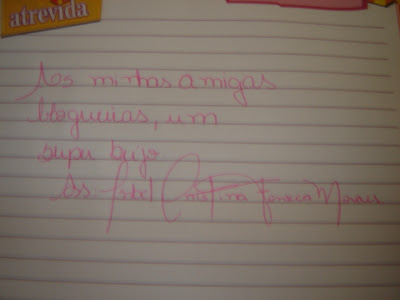 atrevida
As minhas amigas
blogueiras, um
super beijo
Ass- Isabel Cristina Fonseca Morais